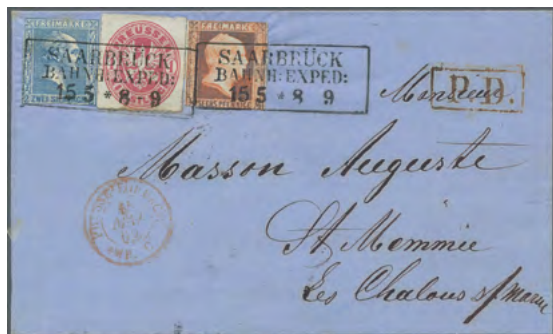 FREIMARKE
ZWEI SILBERGR.
PREUSSEN
FREIMARKE
SECHS PFENNIG
SAARBRÜCK
BAHNH: EXPED:
15 5 * 8 - 9
SAARBRÜCK
BAHNH: EXPED:
15 5 * 8 9
P.D.
Monsieur
Masson Auguste
St Memmie
Les Chalons s/ marne